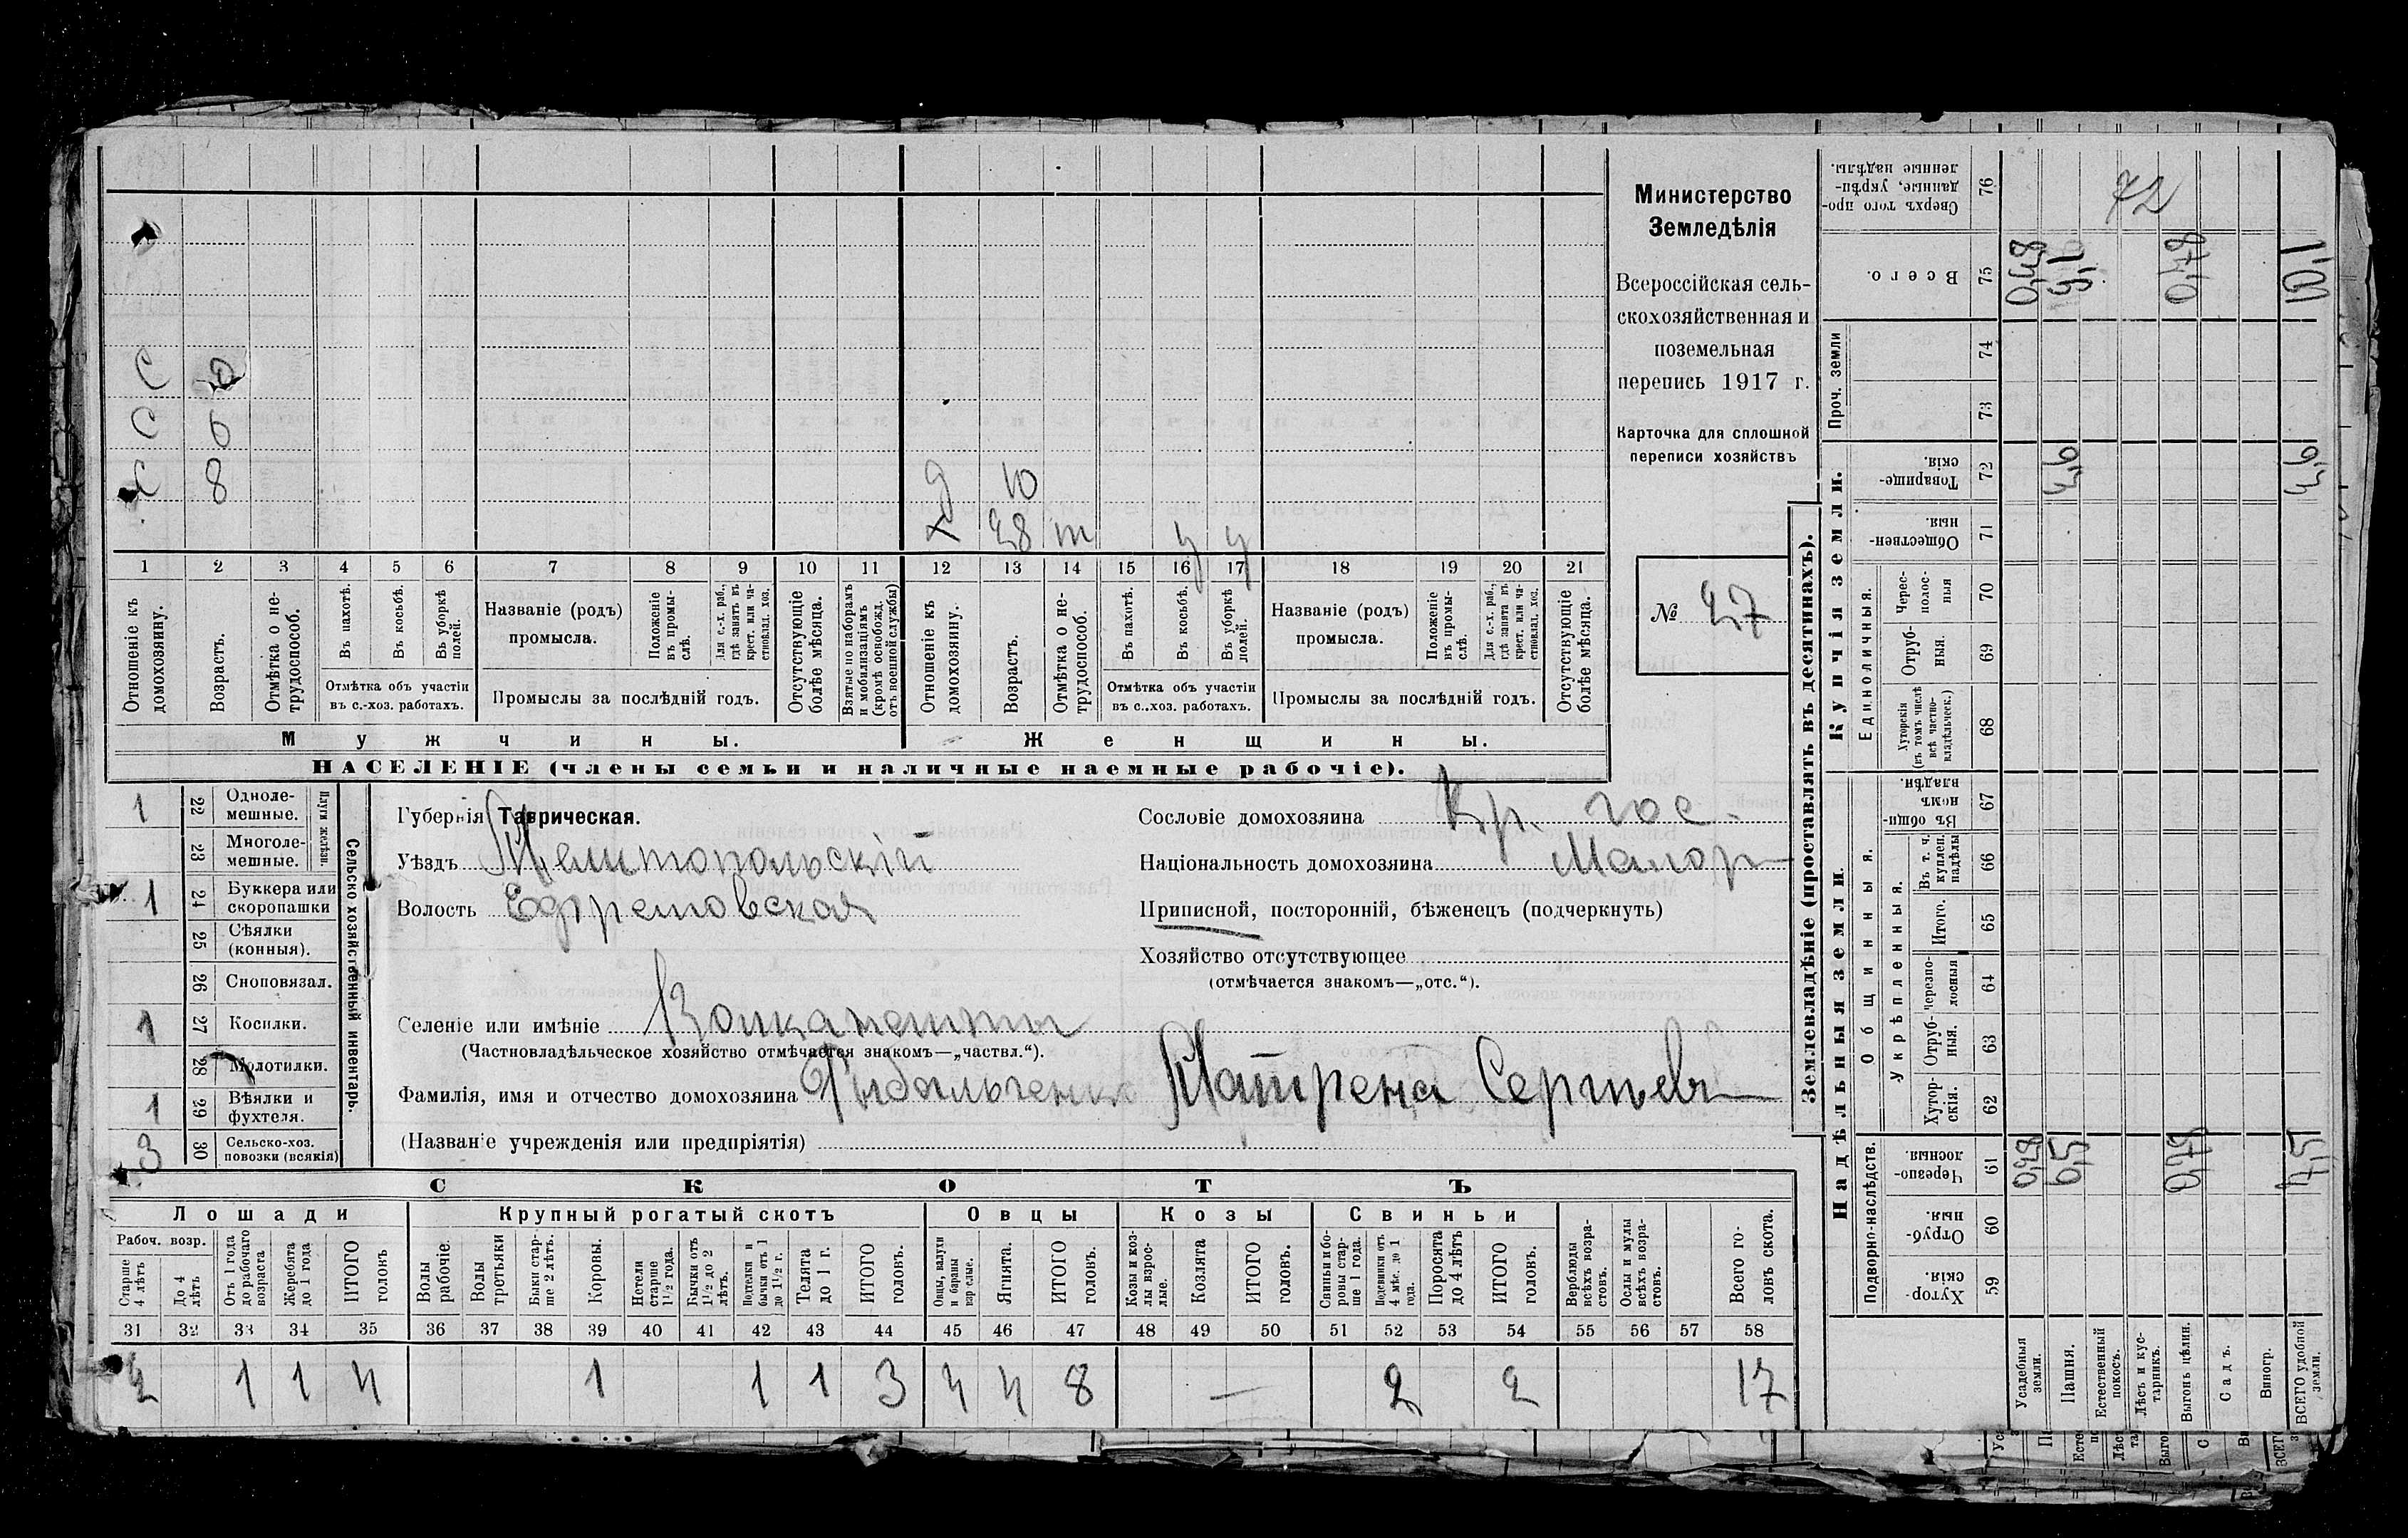 С
С
С 8
д 10
х 28 т у у
1 2 3 4 5 6 7 8 9 10 11 12 13 14 15 16 17 18 19 20 21
Отношеніе къ домохозяину.
Возрастъ.
Отмѣтка о не-трудоспособ.
Въ пахотѣ.
Въ косьбѣ.
Въ уборкѣ полей.
Отмѣтка объ участіи
въ с.-хоз. работахъ.
Названіе (родъ)
промысла.
Положеніе въ промы-слѣ.
Для с.-х. раб., гдѣ занятъ въ крест. или ча-стновлад. хоз.
Промыслы за послѣдній годъ.
Отсутствующіе болѣе мѣсяца.
Взятые по наборамъ и мобилизаціямъ (кромѣ освобожд. отъ военной службы)
Отношеніе къ домохозяину.
Возрастъ.
Отмѣтка о не-трудоспособ.
Въ пахотѣ.
Въ косьбѣ.
Въ уборкѣ полей.
Отмѣтка объ участіи
въ с..хоз. работахъ.
Названіе (родъ)
промысла.
Положеніе въ промы-слѣ.
Для с.-х. раб., гдѣ занята въ крест. или ча-стновлад. хоз.
Промыслы за послѣдній годъ.
Отсутствующіе болѣе мѣсяца.
Мужчины. Женщины.
НАСЕЛЕНІЕ (члены семьи и наличные наемные рабочіе).
Министерство
Земледѣлія
Всероссійская сель-
скохозяйственная и
поземельная
перепись 1917 г.
Карточка для сплошной
переписи хозяйствъ
№ 27
Сельско-хозяйственный инвентарь.
Плуги желѣзн.
1 22 Одноле-мешные.
23 Многоле-мешные.
1 24 Буккера или скоропашки
25 Сѣялки (конныя).
26 Сноповязал.
1 27 Косилки.
28 Молотилки.
1 29 Вѣялки и фухтеля.
3 30 Сельско-хоз. повозки (всякія)
Губернія Таврическая.
Уѣздъ Мелитопольскій
Волость Ефремовская
Селеніе или имѣніе
(Частновладѣльческое хозяйство отмѣчается знакомъ—„частвл.“).
Фамилія, имя и отчество домохозяина Матрена Сергѣев
(Названіе учрежденія или предпріятія)
Сословіе домохозяина Кр. гос.
Національность домохозяина Малор
Приписной, посторонній, бѣженецъ (подчеркнуть)
Хозяйство отсутствующее
(отмѣчается знакомъ—„отс.“).
СКОТЪ
Лошади Крупный рогатый скотъ Овцы Козы Свиньи
Рабоч. возр.
Старше 4 лѣтъ
До 4 лѣтъ
Отъ 1 года до рабочаго возраста
Жеребята до 1 года
ИТОГО головъ
Волы рабочіе.
Волы третьяки
Быки стар-ше 2 лѣтъ.
Коровы.
Нетели старше 1½ года.
Бычки отъ 1½ до 2 лѣтъ.
Подтелки и бычки отъ 1 до 1½ г.
Телята до 1 г.
ИТОГО головъ.
Овцы, валухи и бараны взрослые.
Ягнята.
ИТОГО головъ.
Козы и коз-лы взрос-лые.
Козлята
ИТОГО головъ.
Свиньи и бо-ровы стар-ше 1 года.
Подсвинки отъ 4 мѣс. до 1 года.
Поросята до 4 лѣтъ
ИТОГО головъ.
Верблюды всѣхъ возра-стовъ.
Ослы и мулы всѣхъ возра-стовъ.
Всего го-ловъ скота.
31 32 33 34 35 36 37 38 39 40 41 42 43 44 45 46 47 48 49 50 51 52 53 54 55 56 57 58
2 1 1 4 1 1 1 3 4 4 8 — 2 2 17
Землевладѣніе (проставлять въ десятинахъ).
Надѣльныя земли. Купчія земли. Проч. земли
Подворно-наслѣдств.
Общинныя.
Укрѣпленныя.
Единоличныя.
59 Хутор-скія.
60 Отруб-ныя.
61 Черезпо-лосныя
62 Хутор-скія.
63 Отруб-ныя.
64 Черезпо-лосныя
65 Итого.
66 Въ т. ч. куплен. надѣлы
67 Въ общи-номъ владѣн.
68 Хуторскія (въ томъ числѣ всѣ частно-владѣльческ.)
69 Отруб-ныя.
70 Черес-полос-ныя
71 Обществен-ныя.
72 Товарище-скія.
73
74
75 Всего.
76 Сверхъ того про-данные, укрѣп-ленные надѣлы.
72
Усадебныя земли. 0,48
Пашня. 6,5 2,6
Естественный покосъ.
Лѣсъ и кус-тарникъ.
Выгонъ цѣлин.
Садъ.
Виногр.
ВСЕГО удобной земли. 2,6